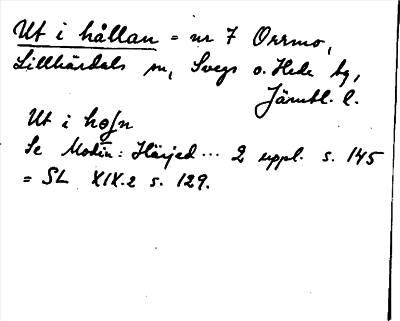 Ut i hållan = nr 7 Orrmo,
Lillhärdals sn, Svegs o. Hede tg,
Jämtl. l.
Ut i
Se Modin: Härjed... 2 uppl. s. 145
= SL XIX.2 s. 129.